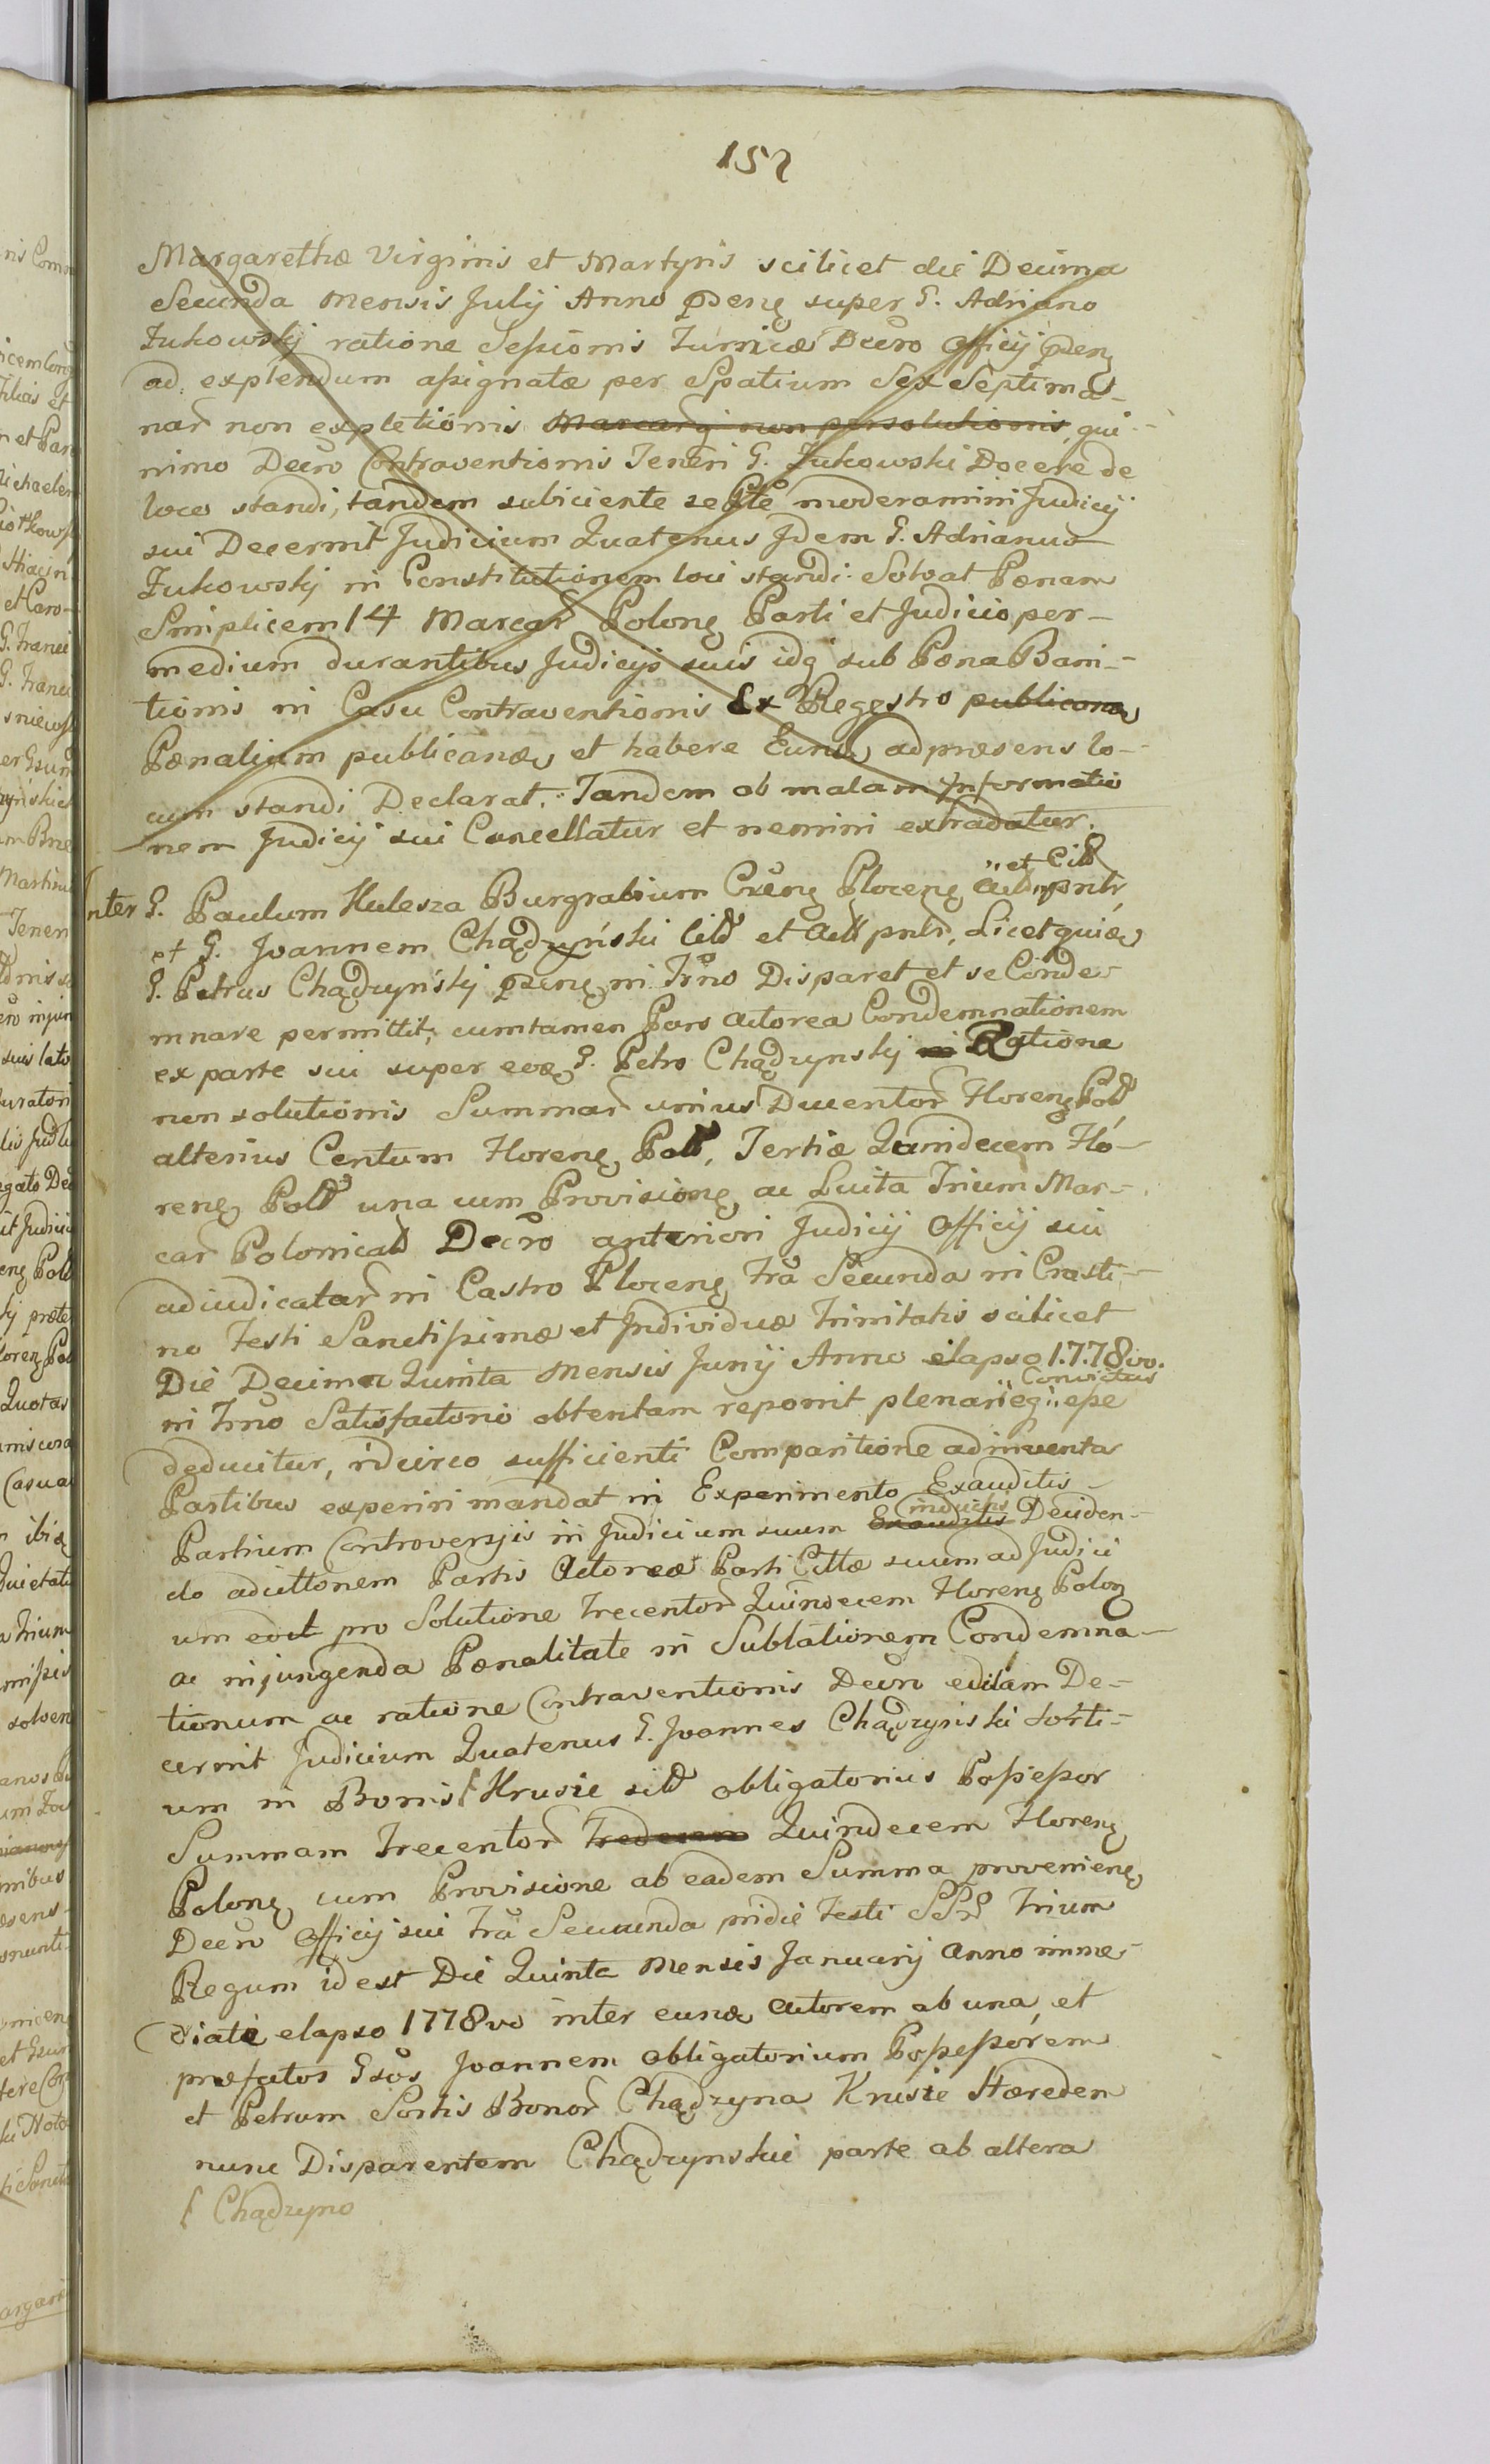 152
Margarethæ Virginis et Martyris scilicet die Decima
Secunda Mensis Julij Anno præng super G. Adriano
Żukowskj ratione Sessionis Turricæ Decro Officij præng
ad explendum assignatæ per Spatium Sex Septima-
nar non expletionis Marcarg non persolutionis, qui-
nimo Decro Contraventionis Teneri G. Żukowski Docere de
loco standi, tandem subiciente se Pte moderamini Judicij
sui Decernit Judicium Quatenus Jdem G. Adrianus
Żukowskj in Constitutionem loci standi Solvat Pœnam
Simplicem 14 Marcar Polong Parti et Judicio per-
medium durantibus Judicijs suis idq sub Pœna Bani-
tionis in Casu Contraventionis Ex Regestro publicana
Pœnalium publicanæ et habere Eund ad præsens lo-
cum standi Declarat. Tandem ob malam Informatio
nem Judicij sui Cancellatur et nemini extradatur.
Inter G. Paulum Kulesza Burgrabium Creng Ploceng Act et Citt pntr,
et G. Joannem Chądzyński Citt et Act pntr, Licet quia
G. Petrus Chądzyńskj præng in Trno Disparet et se Conde-
mnare permittit, cumtamen Pars Actorea Condemnationem
ex parte sui super eog G. Petro Chądzynskj Ratione
non solutionis Summar unius Ducentor Floreng Poll
alterius Centum Floreng Poll, Tertiæ Quindecem Flo-
reng Poll una cum Provisione ac Luita Trium Mar-
car Polonicall Decro anteriori Judicij Officij sui
adiudicatar in Castro Ploceng Fra Secunda in Crasti-
no Festi Sanctissimæ et Jndividuæ Trinitatis scilicet
Die Decima Quinta Mensis Junij Anno elapso 1778vo.
in Trno Satisfactorio obtentam reponit plenarieg Convictus esse
deducitur, idcirco sufficienti Comparitione adinventa
Partibus experiri mandat in Experimento Exauditis
Partium Controversijs in Judicium suum Exauditis inductis Deciden-
do adcittonem Partis Actoreæ Parti Cittæ suum ad Judici
um eoct pro Solutione Trecentor Quindecem Floreng Polong
ac injungenda Pœnalitate in Sublationem Condemna-
tionum ac ratione Contraventionis Decro editam De-
cernit Judicium Quatenus G. Joannes Chądzynski Sorti-
um in Bonis Krusie sitt obligatorius Possessor
Summam Trecentor Tredecem Quindecem Floreng
Polong cum Provisione ab eadem Summa provenieng
Decro Officij sui Fra Secunda pridie Festi SSr Trium
Regum id est Die Quinta Mensis Januarij Anno imme-
diate elapso 1778vo inter eund Actorem ab una, et
præfatos Gsos Joannem obligatorium Possessorem
et Petrum Sortis Bonor Chądzyna Krusie Hæredem
nunc Disparentem Chądzynskie parte ab altera
Chądzyno